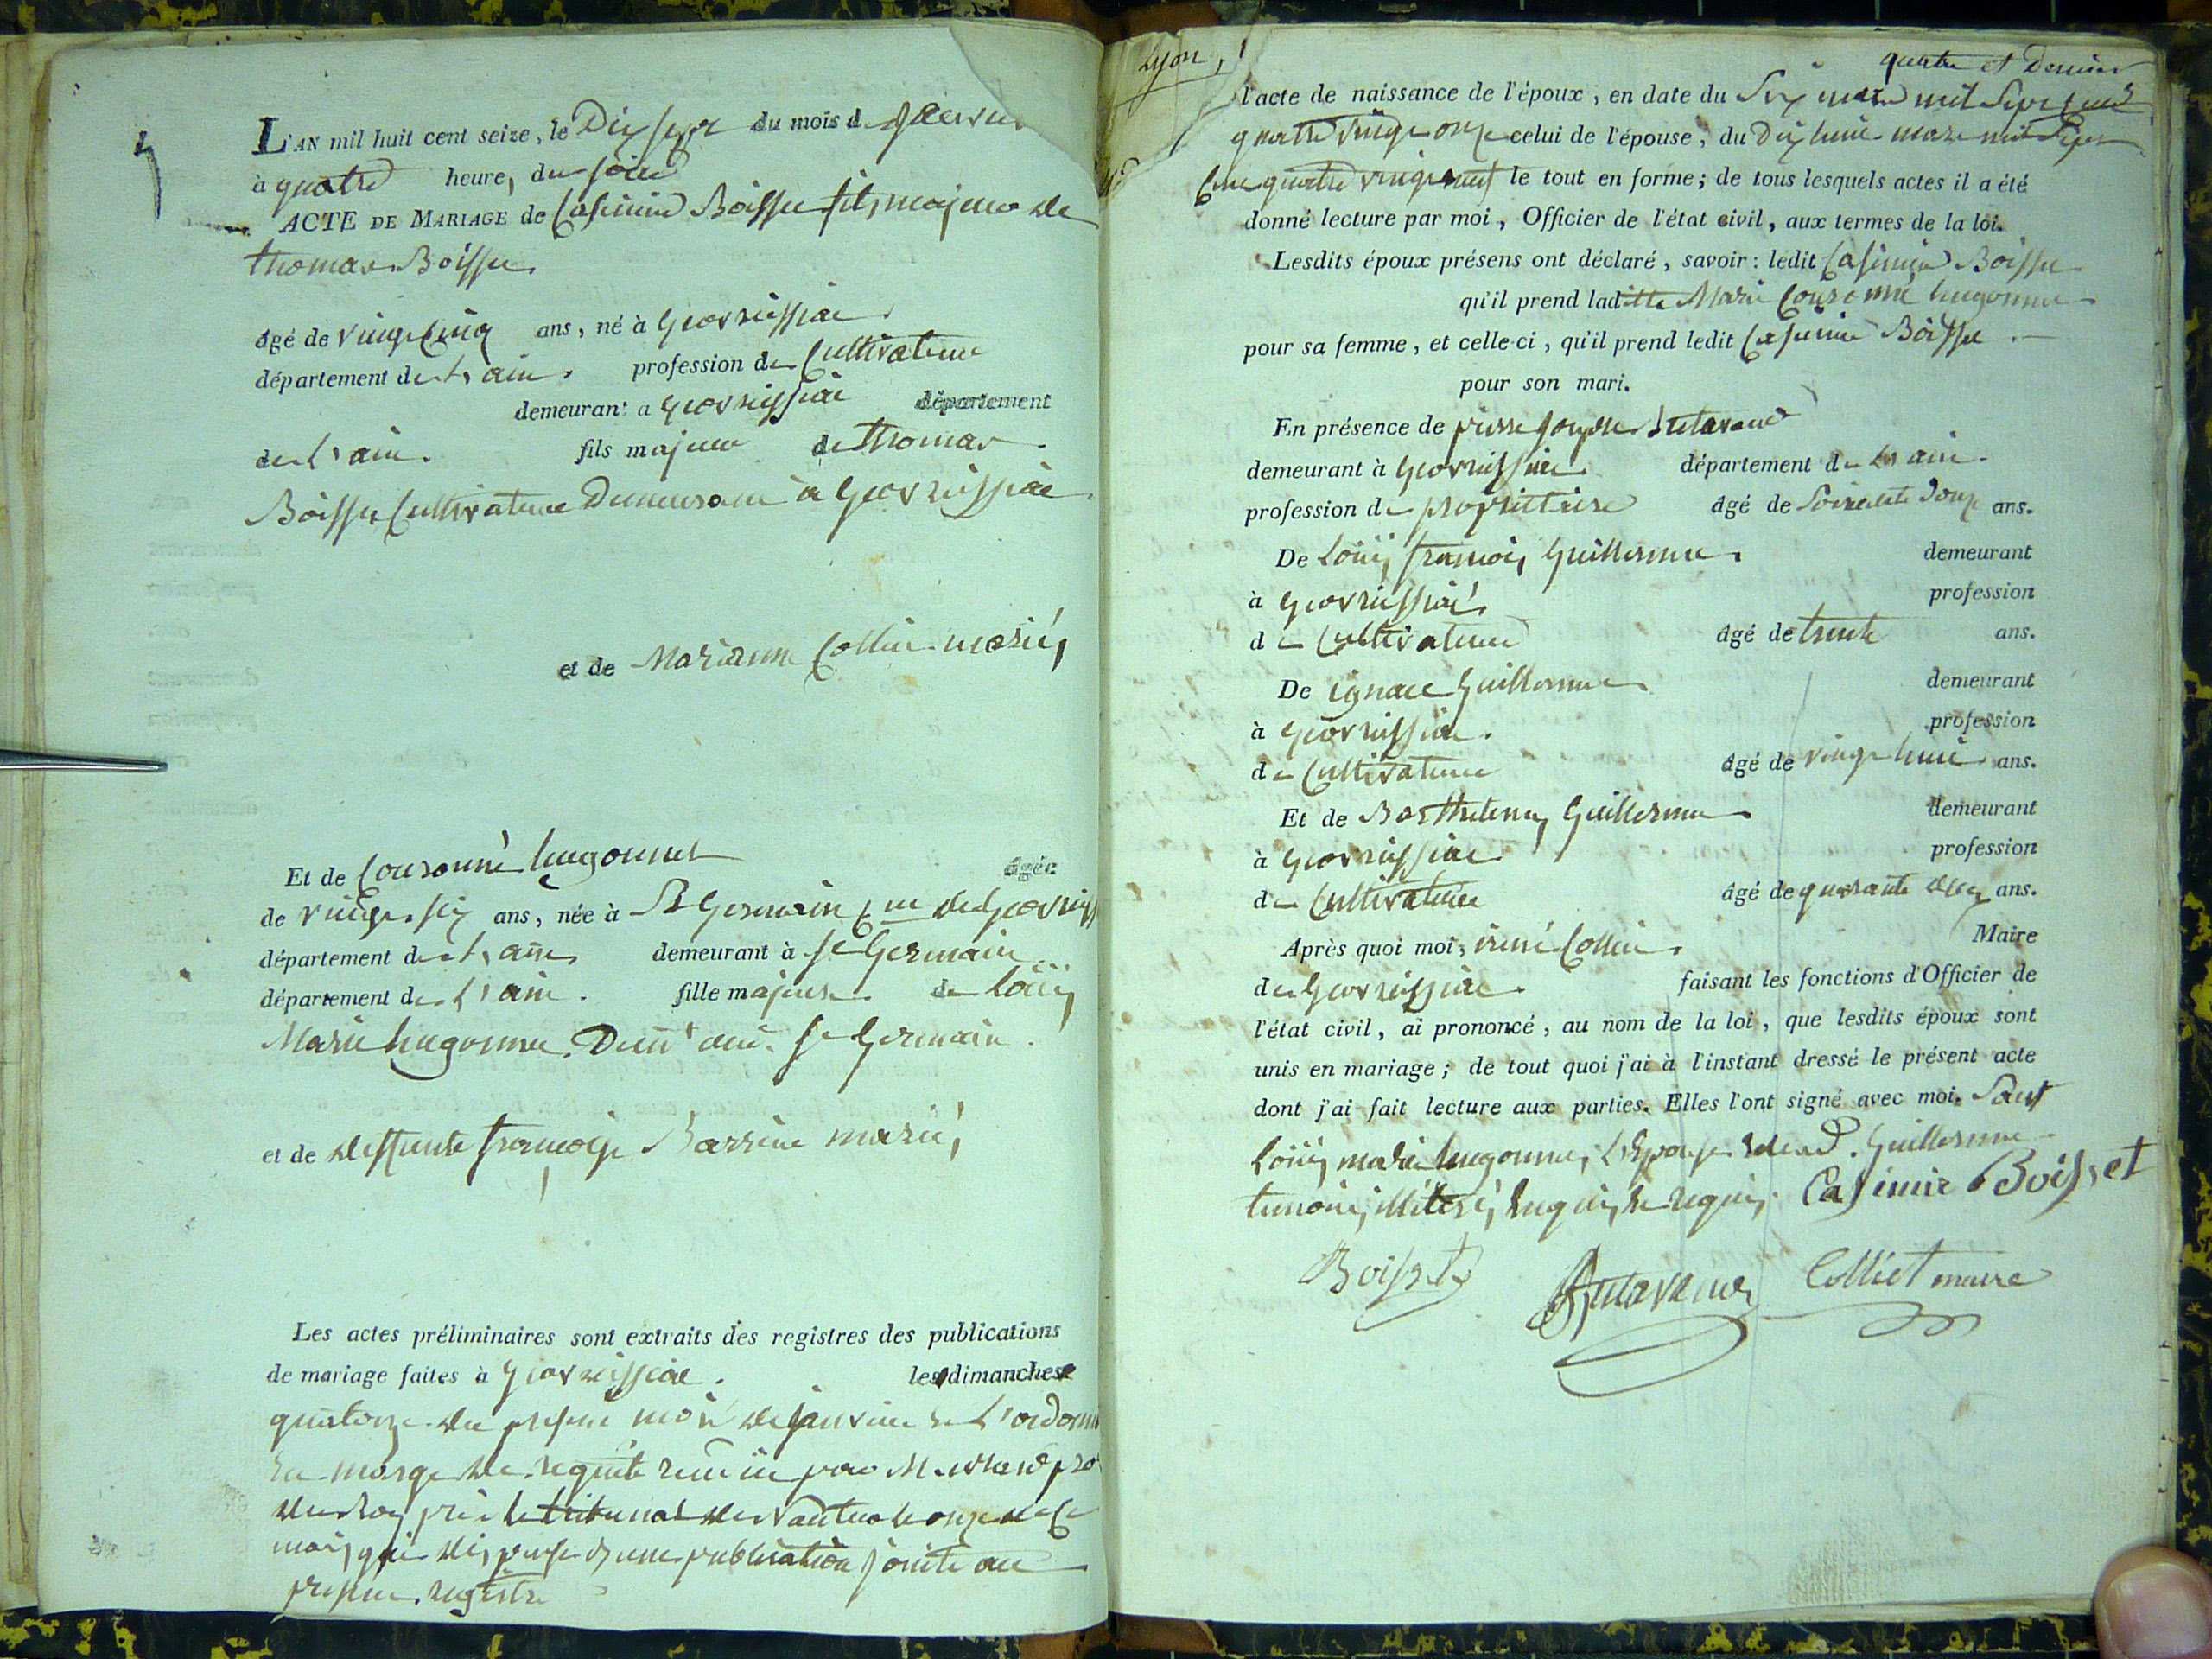 L'AN mil huit cent seize, le Dix sept du mois de
à quatre heure, du soir
ACTE DE MARIAGE de Casimir Boisset fils majeur de
thomas Boisset
âgé de vingt Cinq ans, né à Geovreissiat
département de L'ain. profession de Cultivateur
demeurant a Geovreissiat département
de L'ain. fils majeur de thomas
Boisset Cultivateur Demeurant à Geovreissiat
et de Marianne Colliet mariés
Et de Couronné hugonnet âgée
de vingt six ans, née à St Germain de Geovreiss
département de L'ain demeurant à St Germain
département de L'ain. fille majeure de Loüis
Marie hugonnet. Demt audt St Germain.
et de deffunte françoise Barrière mariés
Les actes préliminaires sont extraits des registres des publications
de mariage faites à Geovreissiat. les dimanches
quatorze du présent mois de janvier & L'ordonn
En marge de requête par M.
du Roy près le tribunal de Nantua le onze de Ce
mois, qui dispense d'une publication jointe au
présent registre
Lyon, quatre et Dernier
l'acte de naissance de l'époux, en date du Six mars mil Sept Cent
quatre vingt onze celui de l'épouse, du Dix huit mars mil Sept
Cent quatre vingt neuf le tout en forme; de tous lesquels actes il a été
donné lecture par moi, Officier de l'état civil, aux termes de la loi.
Lesdits époux présens ont déclaré, savoir: ledit Casimir Boisset
qu'il prend laditte Marie Couronné hugonnet
pour sa femme, et celle-ci, qu'il prend ledit Casimir Boisset
pour son mari.
En présence de pierre joseph Sutavand
demeurant à Geovreissiat département de L'ain.
profession de propriétaire âgé de Soixante Douze ans.
De Loüis françois Guillermet demeurant
à Geovreissiat profession
de Cultivateur âgé de trente ans.
De ignace Guillermet demeurant
à Geovreissiat. profession
de Cultivateur âgé de vingt huit ans.
Et de Barthelemy Guillermet demeurant
à Geovreissiat profession
de Cultivateur âgé de quarante deux ans.
Après quoi moi, irené Colliet Maire
de Geovreissiat faisant les fonctions d'Officier de
l'état civil, ai prononcé, au nom de la loi, que lesdits époux sont
unis en mariage; de tout quoi j'ai à l'instant dressé le présent acte
dont j'ai fait lecture aux parties. Elles l'ont signé avec moi. Sauf
Loüis marie hugonnet, L'Epouse Guillermet
témoins, illiterés Enquis, & requis. Casimir Boisset
Boisset Colliet maire